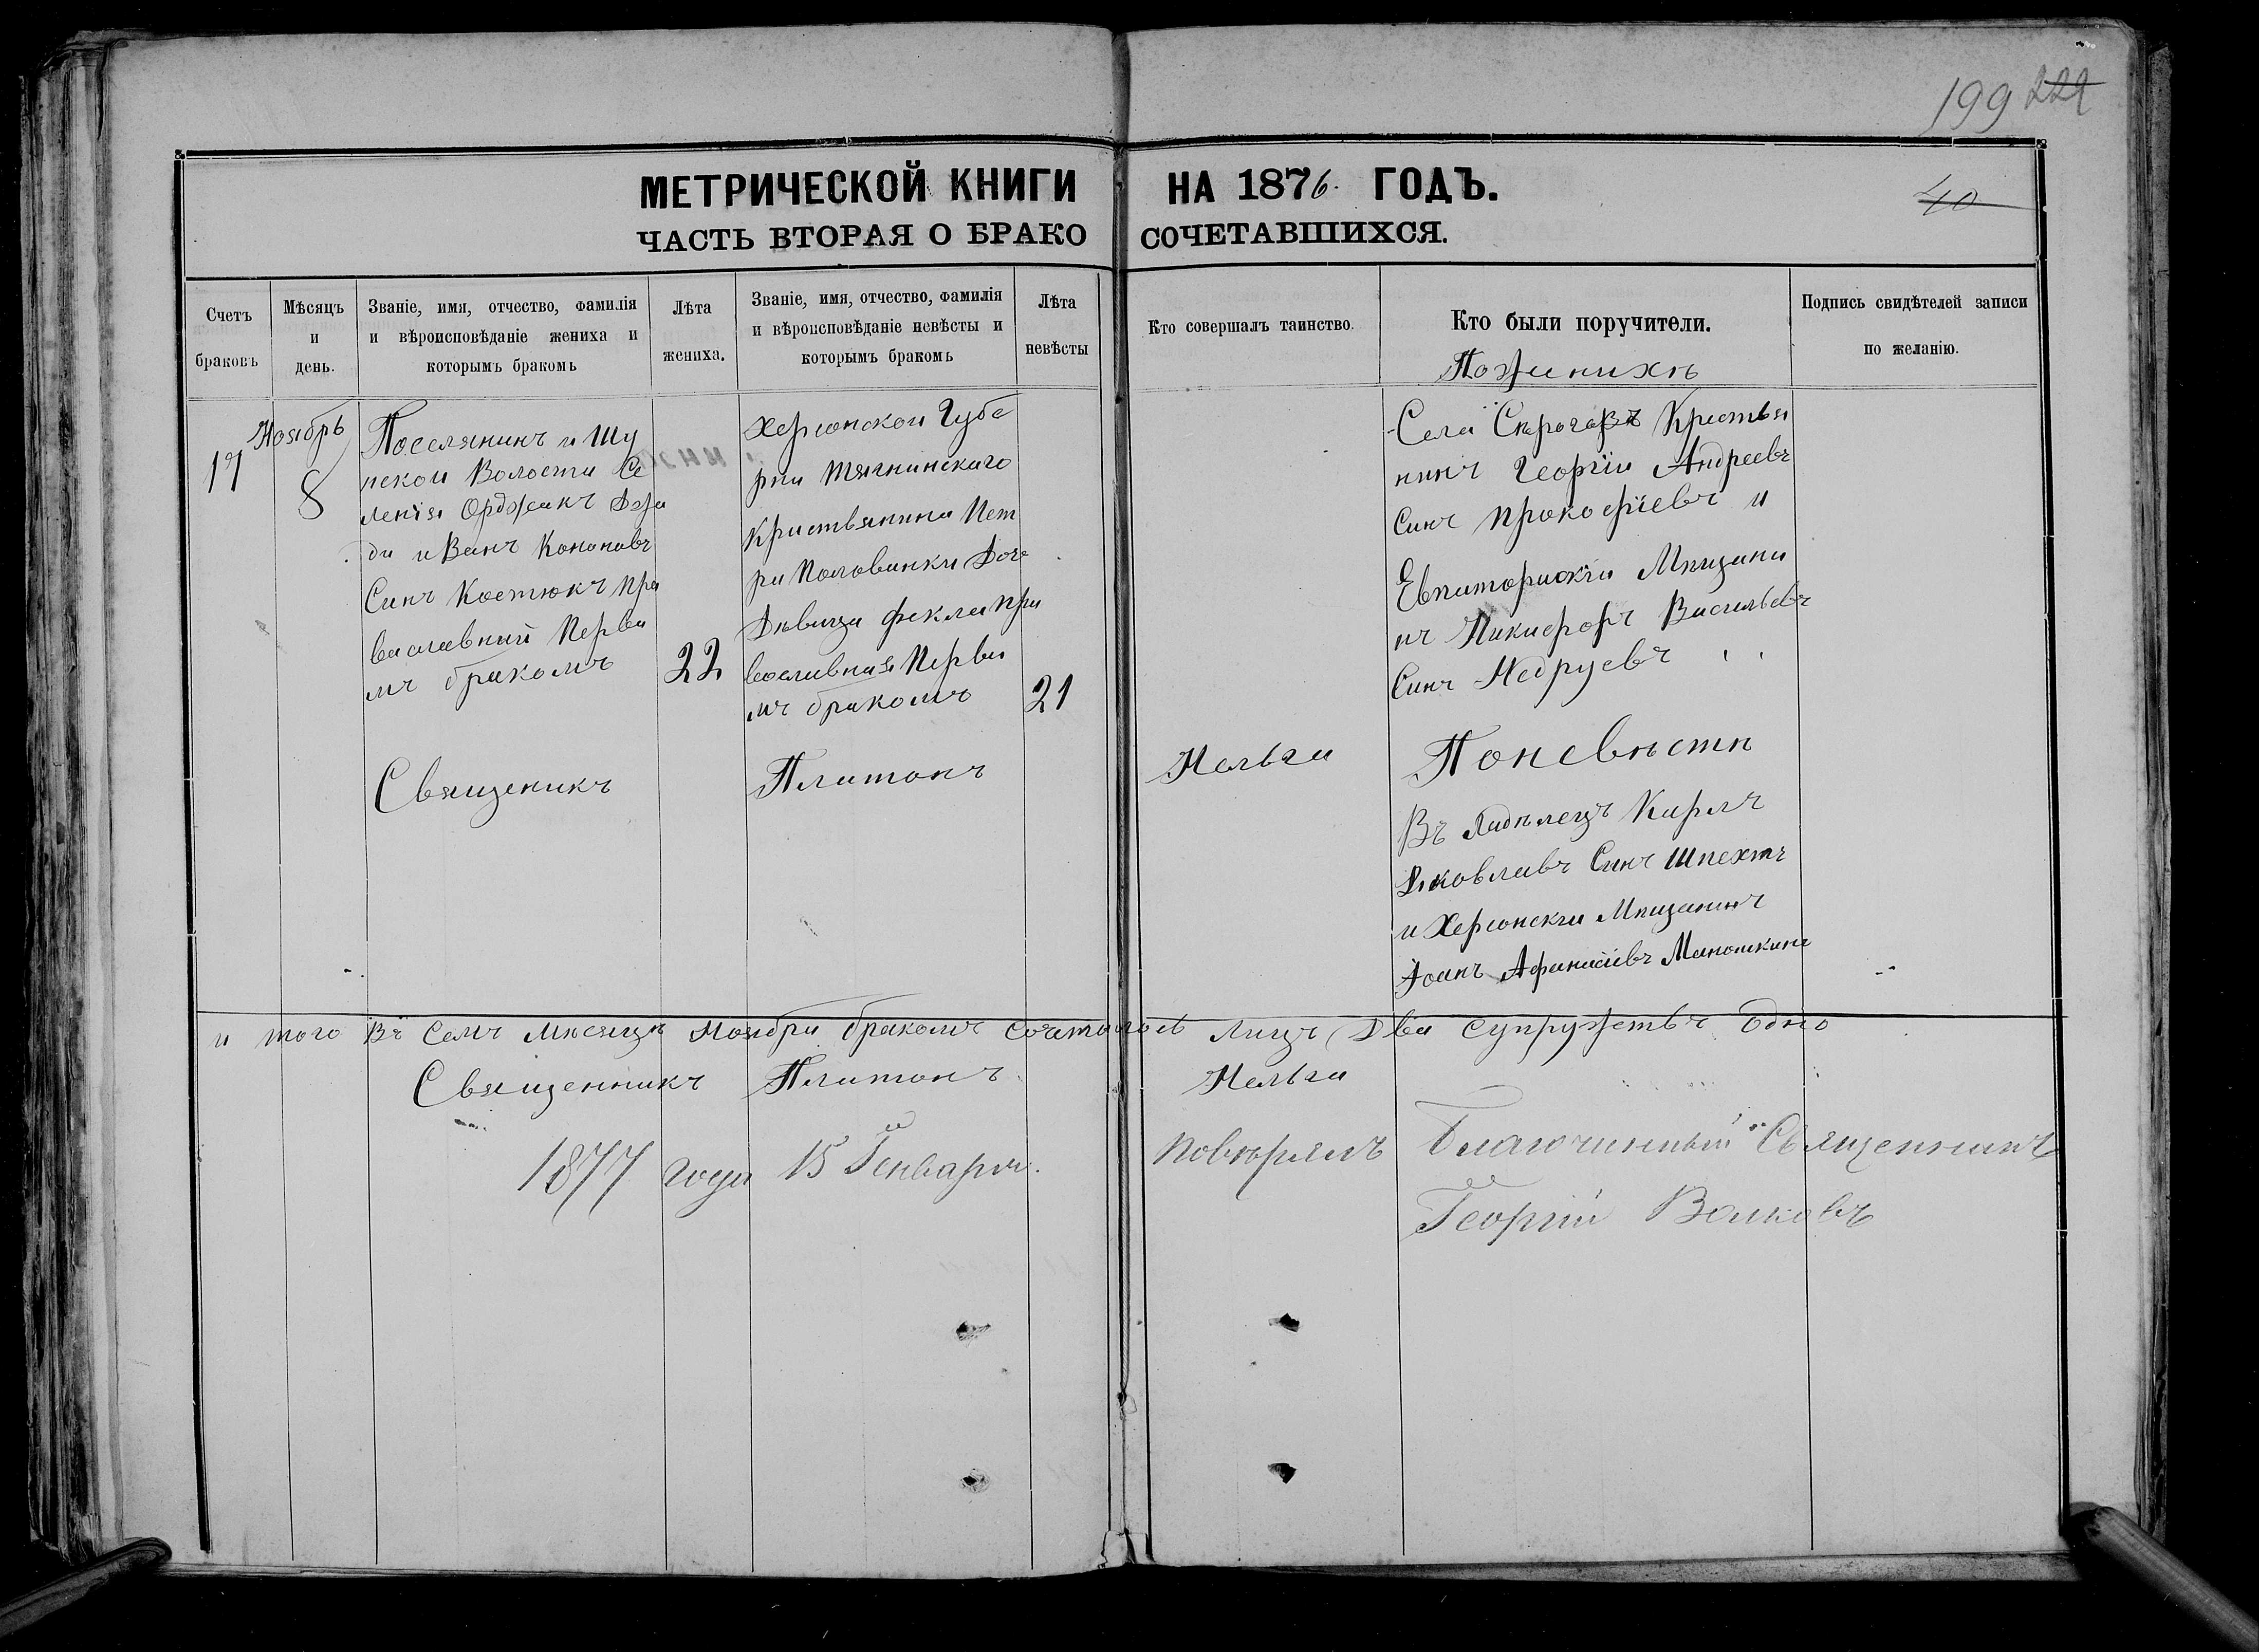 199 222
МЕТРИЧЕСКОЙ КНИГИ НА 1876 ГОДЪ.
40
ЧАСТЬ ВТОРАЯ О БРАКОСОЧЕТАВШИХСЯ.
Счетъ браковъ
Мѣсяцъ и день.
Званіе, имя, отчество, фамилія
и вѣроисповѣданіе жениха и
которымъ бракомъ
Лѣта жениха.
Званіе, имя, отчество, фамилія
и вѣроисповѣданіе невѣсты и
которымъ бракомь
Лѣта невѣсты
Кто совершалъ таинство.
Кто были поручители.
Подпись свидѣтелей записи
по желанію.
17
Ноябрь
8
Поселянинъ и Шу
нской Волости Се
ленія Орджакъ
ди иванъ Кононовъ
Синъ Костюкъ пра
ваславний Перви
мъ бракомъ
22
Херсонской Губе
рни Тягнинскаго
Кристьянина Пет
ра Половинки Доче
Дѣвица фекла пра
вославная Перви
мъ бракомъ
21
Пожинихѣ
Села Кристья
нинъ Георгіи Андреевъ
Синъ прокофіевъ и
Евпаторискіи Мпщани
нъ Никифоръ Васильевъ
Синъ Недруевъ
Поневѣсти
Въ Карлъ
Яковлевъ Синъ Шпехтъ
и Херсонскги Мпщанинъ
Іоанъ Афанасіевъ Маношкинъ
Священикъ Платонъ Нельга
и того Въ Семъ Мѣсяцѣ Ноябри бракомъ Сочеталось Лицъ Два Супружствъ Одно
Священникъ Платонъ Нельга
1877 года 15 Генваря. Повѣрялъ Благочинный Священникъ
Георгій Волковъ